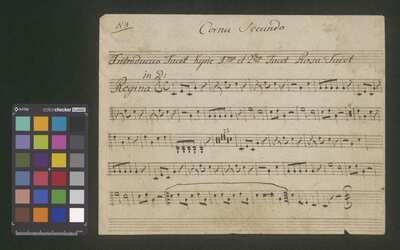 Nº 4
Cornu Secundo
Introducio Tacet Kyrie 1mo et 2do Tacet Rosa Tacet
in D:
Regina
colorchecker